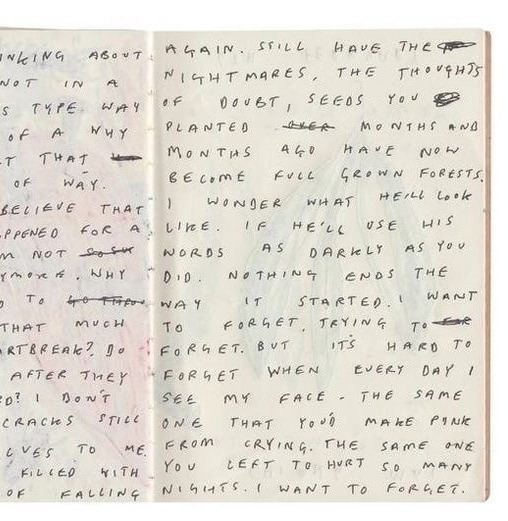 INKING ABOUT
NOT IN A
S TYPE WAY
OF A WHY
T THAT
OF WAY.
BELIEVE THAT
PPENED FOR A
M NOT
YMORE. WHY
D TO
THAT MUCH
ARTBREAK? DO
AFTER THEY
D? I DON'T
CRACKS STILL
LVES TO ME.
FILLED WITH
OF FALLING
AGAIN. STILL HAVE THE
NIGHTMARES, THE THOUGHTS
OF DOUBT, SEEDS YOU
PLANTED OVER MONTHS AND
MONTHS AGO HAVE NOW
BECOME FULL GROWN FORESTS.
I WONDER WHAT HE'LL LOOK
LIKE. IF HE'LL USE HIS
WORDS AS DARKLY AS YOU
DID. NOTHING ENDS THE
WAY IT STARTED. I WANT
TO FORGET, TRYING TO FOR
FORGET. BUT IT'S HARD TO
FORGET WHEN EVERY DAY I
SEE MY FACE - THE SAME
ONE THAT YOU'D MAKE PINK
FROM CRYING. THE SAME ONE
YOU LEFT TO HURT SO MANY
NIGHTS. I WANT TO FORGET.